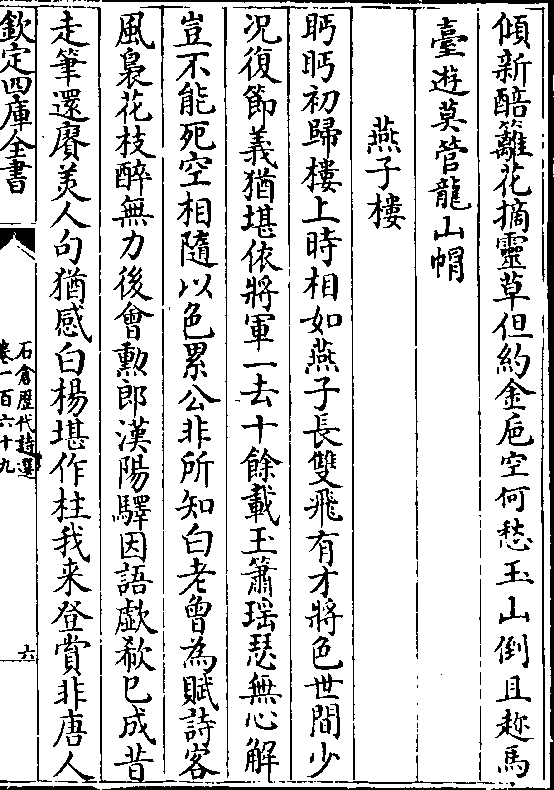 傾新醅籬花摘靈草但約金巵空何愁玉山倒且趂馬
臺遊莫管龍山帽
燕子樓
盻盻初歸樓上時相如燕子長雙飛有才將色世間少
况復節義猶堪依將軍一去十餘載玉簫瑶瑟無心解
豈不能死空相隨以色累公非所知白老曾為賦詩客
風裊花枝醉無力後會勲郎漢陽驛因語歔欷已成昔
走筆還賡美人句猶感白楊堪作柱我来登賞非唐人
欽定四庫全書
石倉歴代詩選
卷一百六十九
六